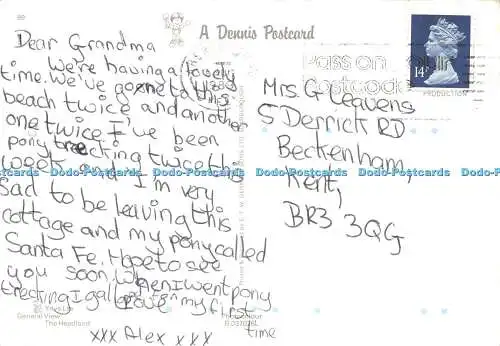 89
A Dennis Postcard
Dear Grandma
We're having a lovely
time. We've gone to this
beach twice and another
one twice I've been
pony trecking twice this
week and I'm very
sad to be leaving this
cottage and my pony called
Santa Fe. Hope to see
you soon. When I went pony
trecking I galloped for my first
time
xxx Alex xxx
General View
The Headland
Photocolour
Pass on
Postcode
14P
Mrs. G Leavens
5 Derrick RD
Beckenham,
Kent,
BR3 3QG
Dodo-Postcards Dodo-Postcards Dodo-Postcards Dodo-Postcards Dodo-Postcards